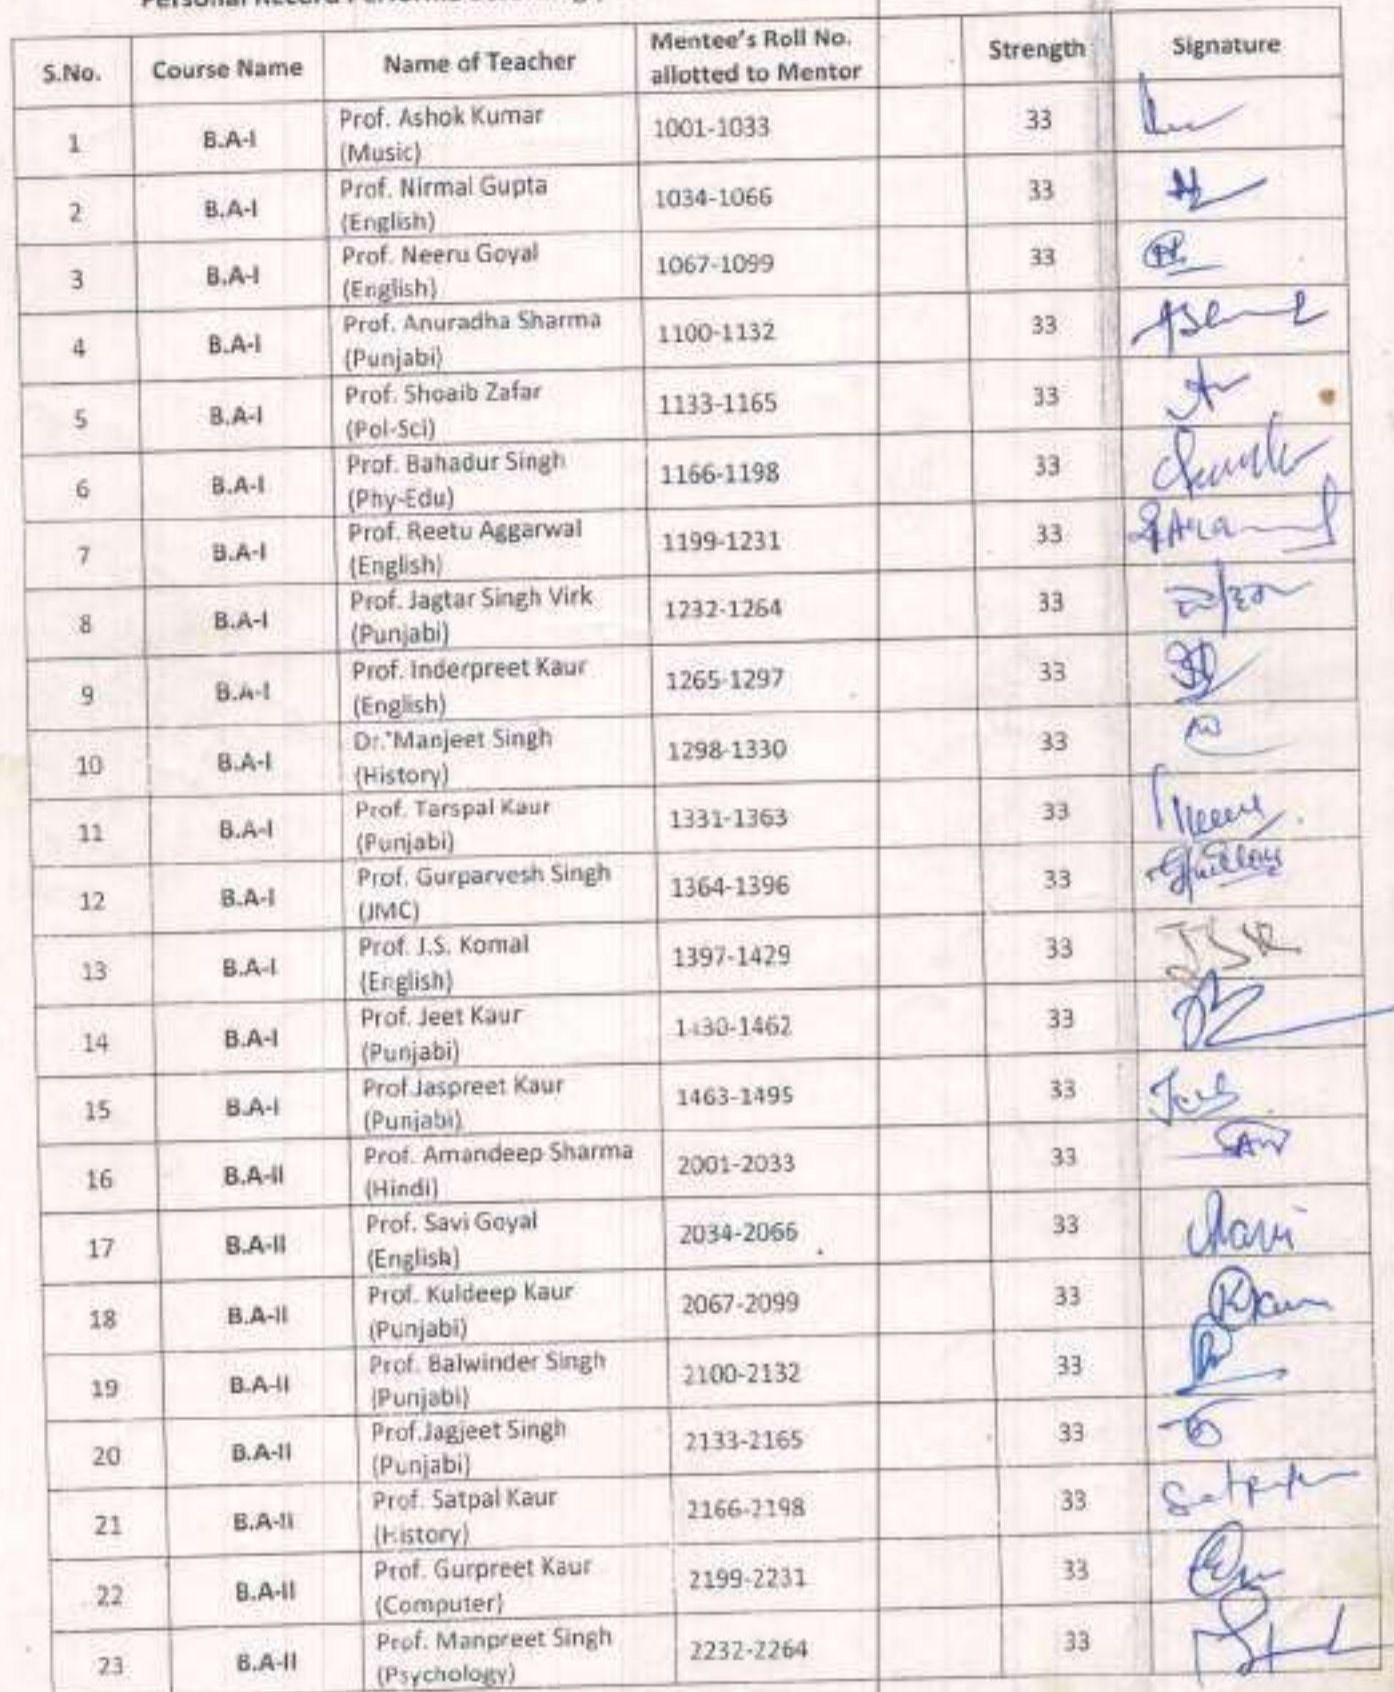 S.No. Course Name Name of Teacher Mentee's Roll No. allotted to Mentor Strength Signature
1 B.A-I Prof. Ashok Kumar (Music) 1001-1033 33
2 B.A-I Prof. Nirmal Gupta (English) 1034-1066 33
3 B.A-I Prof. Neeru Goyal (English) 1067-1099 33
4 B.A-I Prof. Anuradha Sharma (Punjabi) 1100-1132 33
5 B.A-I Prof. Shoaib Zafar (Pol-Sci) 1133-1165 33
6 B.A-I Prof. Bahadur Singh (Phy-Edu) 1166-1198 33
7 B.A-I Prof. Reetu Aggarwal (English) 1199-1231 33
8 B.A-I Prof. Jagtar Singh Virk (Punjabi) 1232-1264 33
9 B.A-I Prof. Inderpreet Kaur (English) 1265-1297 33
10 B.A-I Dr. Manjeet Singh (History) 1298-1330 33
11 B.A-I Prof. Tarspal Kaur (Punjabi) 1331-1363 33
12 B.A-I Prof. Gurparvesh Singh (JMC) 1364-1396 33
13 B.A-I Prof. J.S. Komal (English) 1397-1429 33
14 B.A-I Prof. Jeet Kaur (Punjabi) 1430-1462 33
15 B.A-I Prof.Jaspreet Kaur (Punjabi) 1463-1495 33
16 B.A-II Prof. Amandeep Sharma (Hindi) 2001-2033 33
17 B.A-II Prof. Savi Goyal (English) 2034-2066 33
18 B.A-II Prof. Kuldeep Kaur (Punjabi) 2067-2099 33
19 B.A-II Prof. Balwinder Singh (Punjabi) 2100-2132 33
20 B.A-II Prof.Jagjeet Singh (Punjabi) 2133-2165 33
21 B.A-II Prof. Satpal Kaur (History) 2166-2198 33
22 B.A-II Prof. Gurpreet Kaur (Computer) 2199-2231 33
23 B.A-II Prof. Manpreet Singh (Psychology) 2232-2264 33